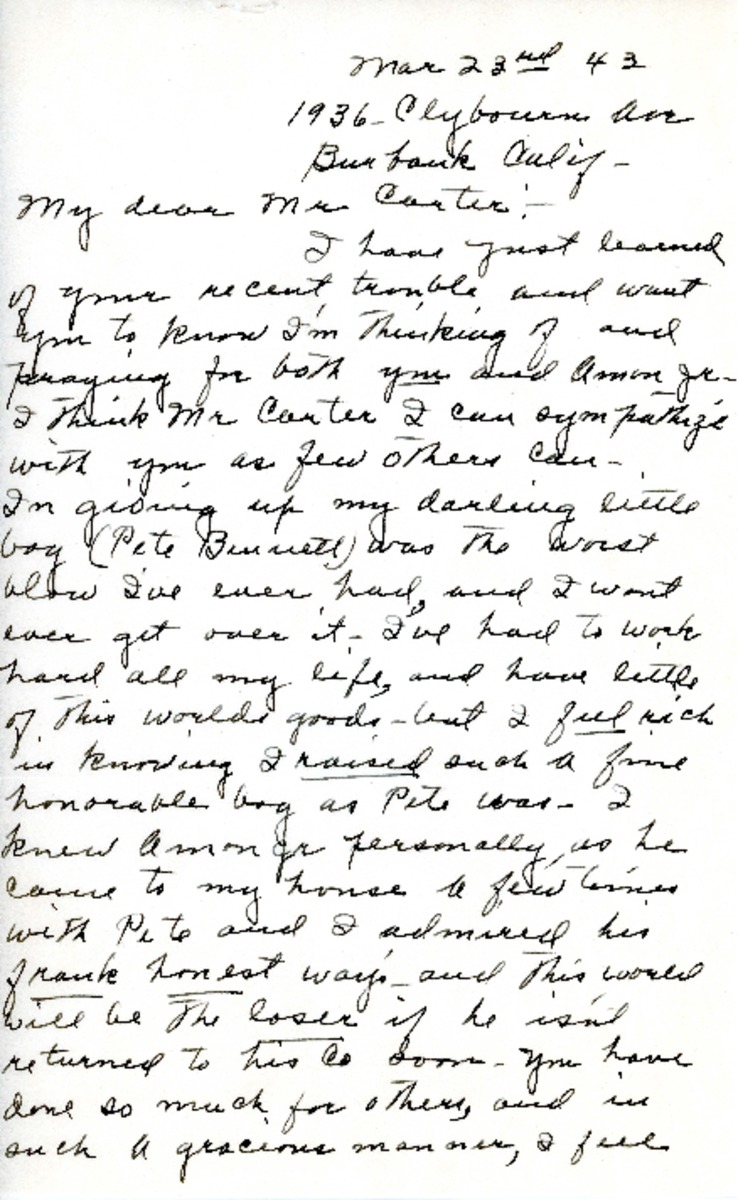 Mar 23rd 43
1936 - Clybourn Ave
Burbank Calif -
My dear Mr Carter: -
I have just learned
of your recent trouble and want
you to know I'm thinking of and
praying for both you and Amon Jr -
I think Mr Carter I can sympathize
with you as few others can -
In giving up my darling little
boy (Pete Bennett) was the worst
blow I've ever had, and I wont
ever get over it - I've had to work
hard all my life, and have little
of this worlds goods - but I feel rich
in knowing I raised such a fine
honorable boy as Pete was - I
knew Amon Jr personally, as he
came to my house a few times
with Pete and I admired his
frank honest ways - and this world
will be the loser if he isn't
returned to his Co soon - You have
done so much for others, and in
such a gracious manner, I feel